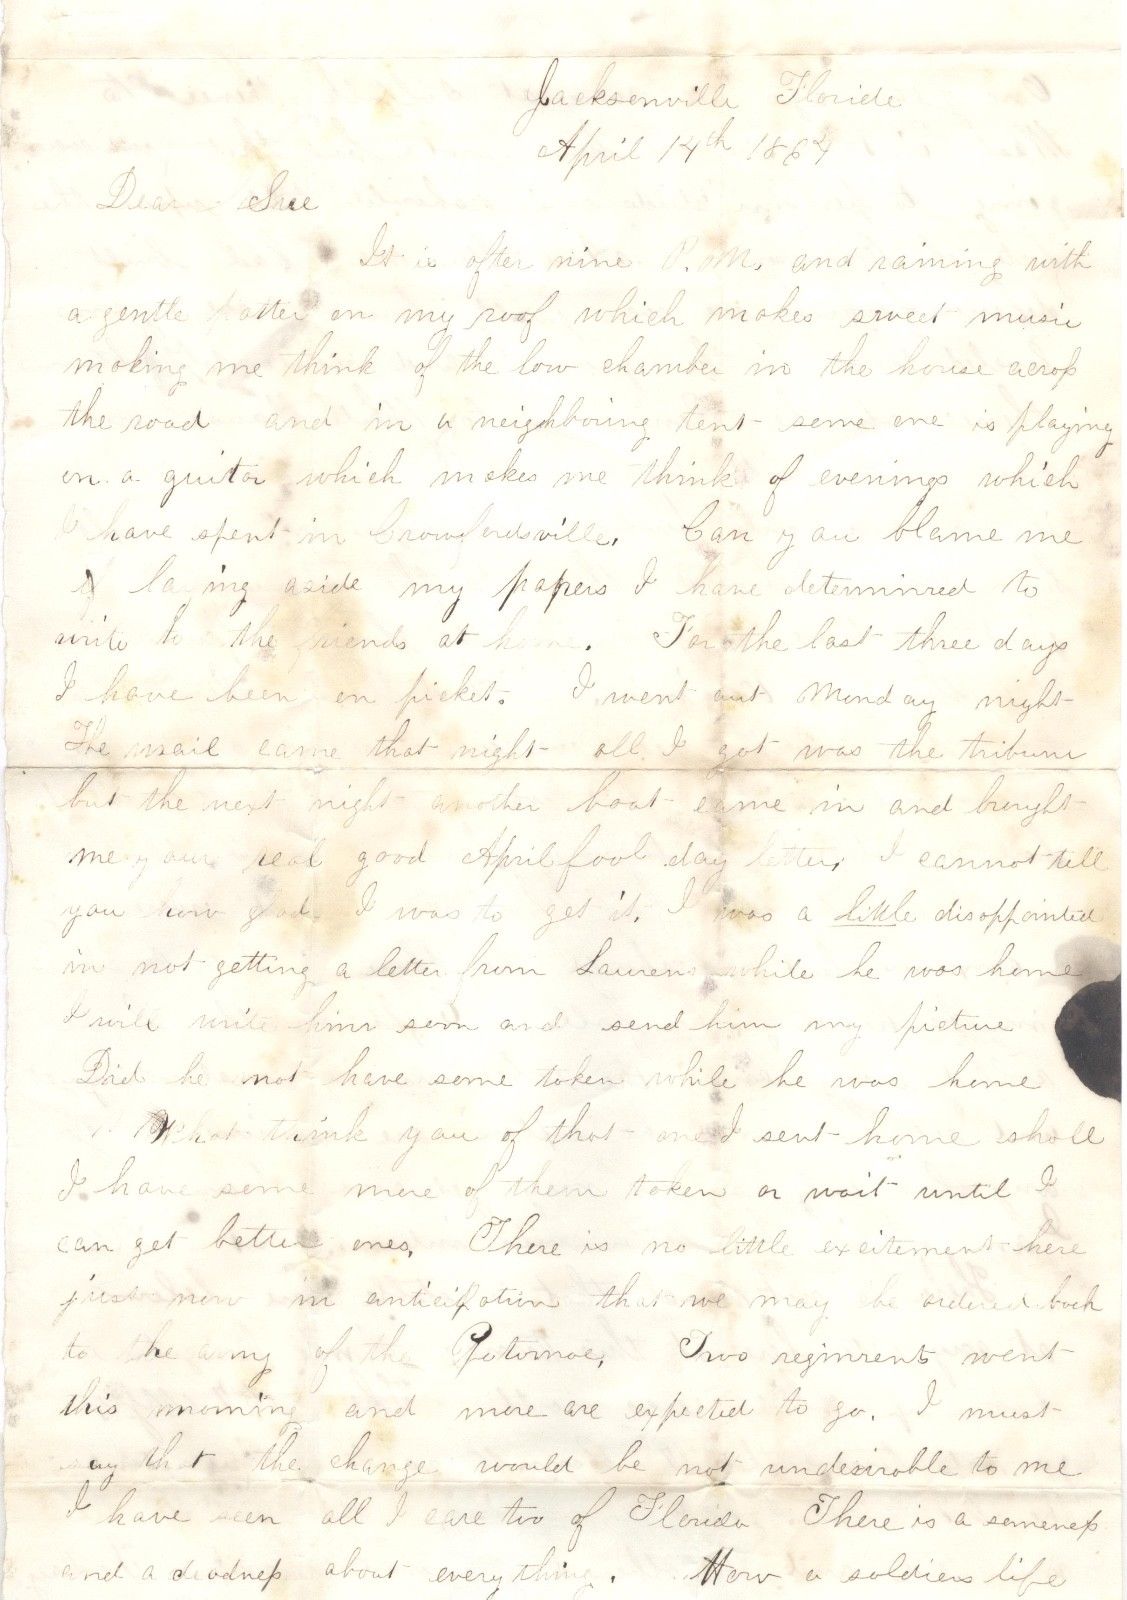 Jacksonville Floride
April 14th 1864
Dear Sue
It is after nine P.M. and raining with
a gentle patter on my roof which makes sweet music
making me think of the low chamber in the house across
the road and in a neighboring tent some one is playing
on a guitar which makes me think of evenings which
I have spent in Crawfordsville. Can you blame me
if laying aside my papers I have determined to
write to the friends at home. For the last three days
I have been on picket. I went out Monday night
The mail came that night all I got was the tribune
but the next night another boat came in and brought
me your real good April fool day letter, I cannot tell
you how glad I was to get it. I was a little disappointed
in not getting a letter from Laurens while he was home
I will write him soon and send him my picture
Did he not have some taken while he was home
What think you of that one I sent home shall
I have some more of them taken or wait until I
can get better ones. There is no little excitement here
just now in anticipation that we may be ordered back
to the army of the Potomac, Two regiments went
this morning and more are expected to go. I must
say that the change would be not undesirable to me
I have seen all I care too of Florida There is a sameness
and a deadness about everything. How a soldiers life